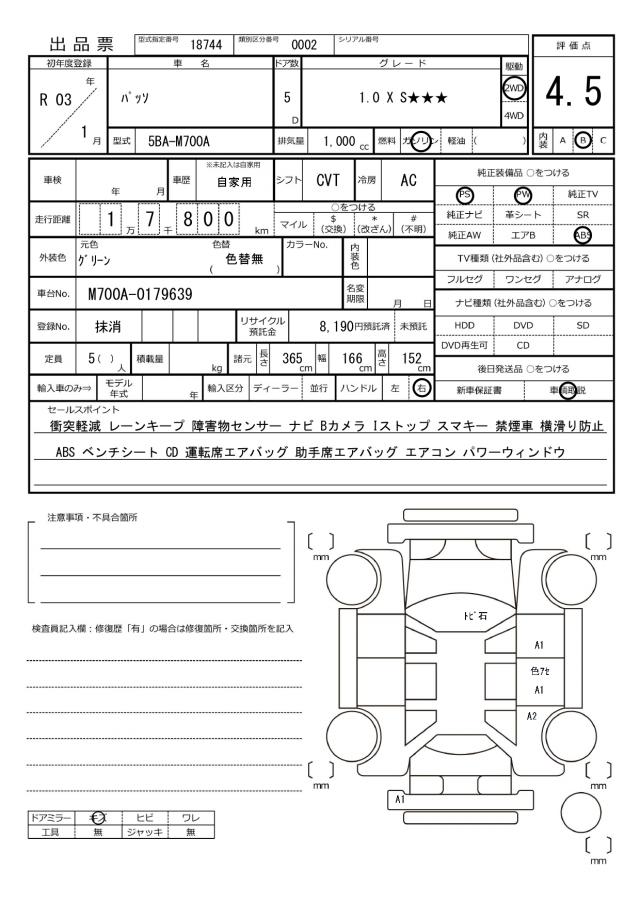 出品票 型式指定番号 18744 類別区分番号 0002 シリアル番号
評価点
4.5
内装 A B C
初年度登録 車名 ドア数 グレード 駆動
R 03 年 1 月
パッソ 5 D 1.0 X S★★★ 2WD 4WD
型式 5BA-M700A 排気量 1,000 cc 燃料 ガソリン 軽油 ( )
車検 年 月 車歴 ※未記入は自家用 自家用 シフト CVT 冷房 AC
走行距離 1 万 7 千 8 0 0 km
○をつける
マイル $ (交換) * (改ざん) # (不明)
外装色 元色 グリーン 色替 ( 色替無 ) カラーNo. 内装色
車台No. M700A-0179639 名変期限 月 日
登録No. 抹消 リサイクル預託金 8,190円預託済 未預託
定員 5 ( ) 人 積載量 kg 諸元 長さ 365 cm 幅 166 cm 高さ 152 cm
輸入車のみ⇒ モデル年式 年 輸入区分 ディーラー 並行 ハンドル 左 右
純正装備品 ○をつける
PS PW 純正TV
純正ナビ 革シート SR
純正AW エアB ABS
TV種類 (社外品含む) ○をつける
フルセグ ワンセグ アナログ
ナビ種類 (社外品含む) ○をつける
HDD DVD SD
DVD再生可 CD
後日発送品 ○をつける
新車保証書 車輌取説
セールスポイント
衝突軽減 レーンキープ 障害物センサー ナビ Bカメラ Iストップ スマキー 禁煙車 横滑り防止
ABS ベンチシート CD 運転席エアバッグ 助手席エアバッグ エアコン パワーウィンドウ
注意事項・不具合箇所
検査員記入欄：修復歴「有」の場合は修復箇所・交換箇所を記入
ドアミラー キズ ヒビ ワレ
工具 無 ジャッキ 無
mm
mm
トビ石
A1
色アセ
A1
A2
mm
mm
A1
mm